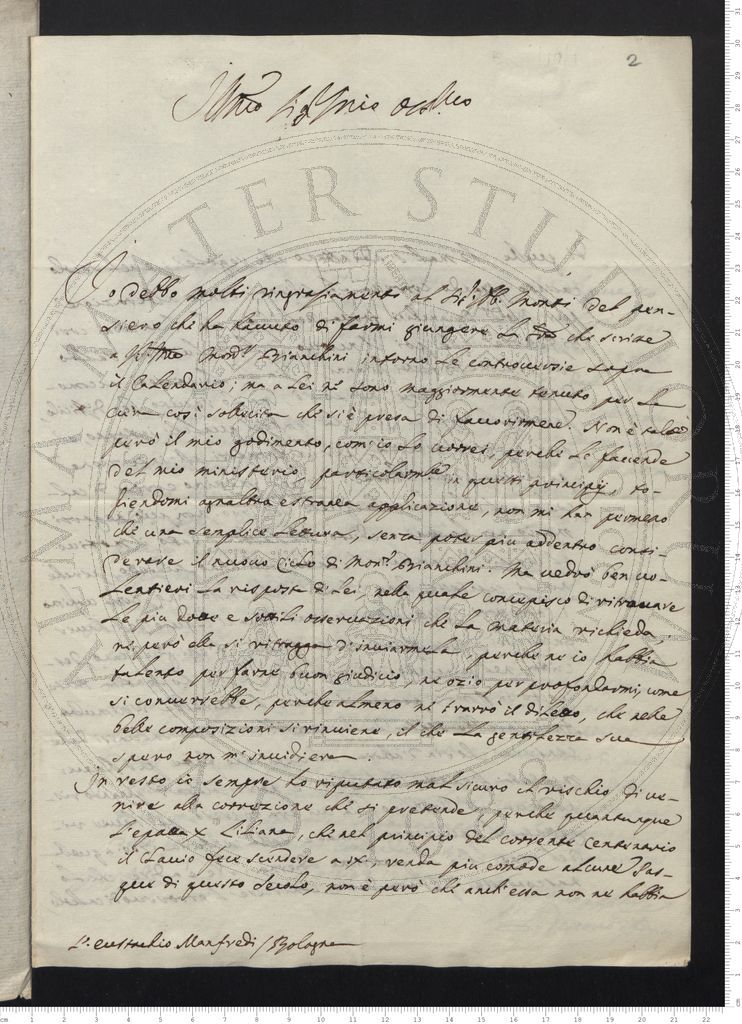 2
Illmo Sigr Prône Ossmo
Io debbo molti ringraziamenti al Sigr Ab. Monti del pen-
siero che ha havuto di farmi giungere la che scrisse
a Monsr Bianchini intorno le controversie sopra
il Calendario; ma a Lei ne sono maggiormente tenuto per la
cura così sollecita che si è presa di favorirmene. Non è tale
però il mio godimento, com'io lo vorrei, perche le facende
del mio ministerio, particolarmte in questi principij, to-
gliendomi ogn'altra estranea applicazione, non mi han permesso
che una semplice lettura, senza poter più addentro consi-
derare il nuovo Ciclo di Monsr Bianchini. Ma vedrò ben vo-
lentieri la risposta di Lei, nella quale concepisco di ritrovare
le più dotte e sottili osservazioni che la materia richieda,
ne però ella si ritragga d'inviarmela, perche ne io habbia
talento per farne buon giudicio, ne ozio per profondarmi, come
si converrebbe, perche almeno ne trarrò il diletto, che nelle
belle composizioni si rinviene, il che la gentilezza sua
spero non m'invidierà.
In resto io sempre ho riputato mal sicuro il rischio di ve-
nire alla correzione che si pretende, perche quantunque
l'epatta X Liliana, che nel principio del corrente centenario
il Clavio fece scendere a ix, renda più comode alcune Pas-
que di questo secolo, non è però che anch'essa non ne habbia
Sr. Eustachio Manfredi / Bologna
ALMA MATER STUDIORUM